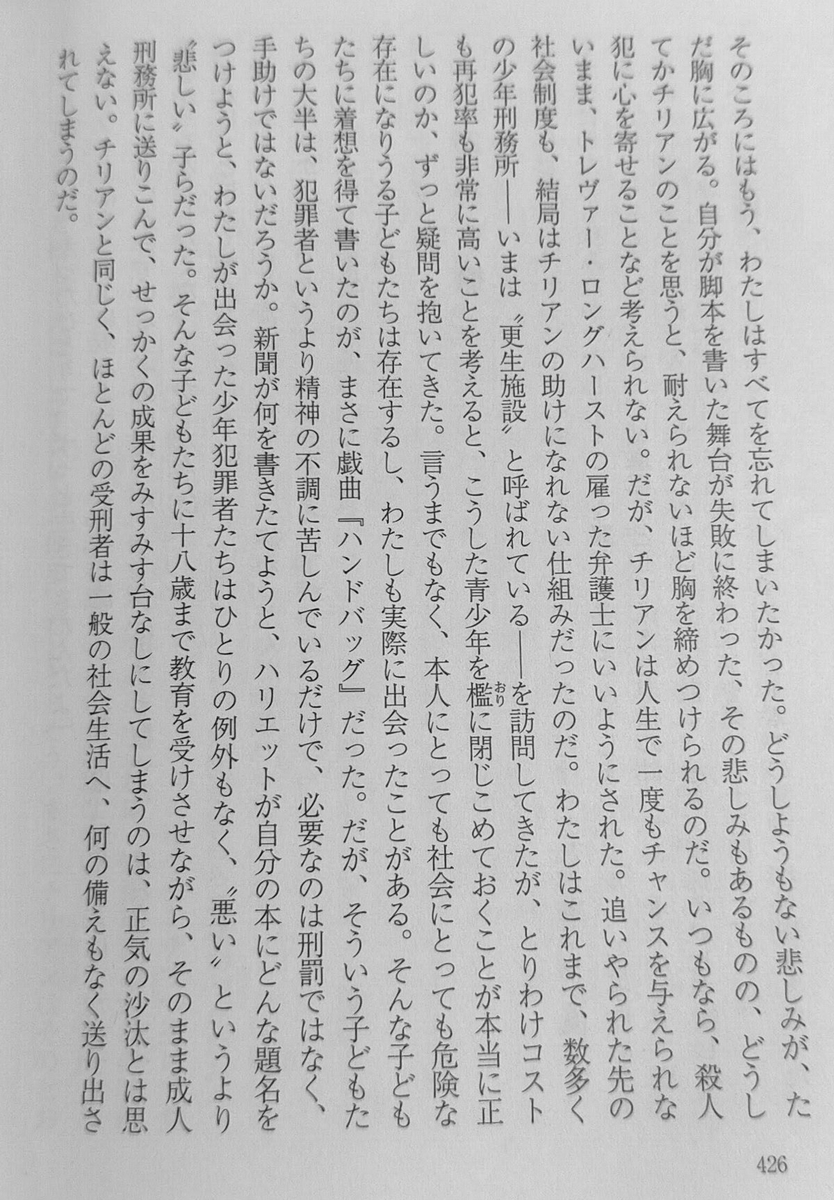 そのころにはもう、わたしはすべてを忘れてしまいたかった。どうしようもない悲しみが、た
だ胸に広がる。自分が脚本を書いた舞台が失敗に終わった、その悲しみもあるものの、どうし
てかチリアンのことを思うと、耐えられないほど胸を締めつけられるのだ。いつもなら、殺人
犯に心を寄せることなど考えられない。だが、チリアンは人生で一度もチャンスを与えられな
いまま、トレヴァー・ロングハーストの雇った弁護士にいいようにされた。追いやられた先の
社会制度も、結局はチリアンの助けになれない仕組みだったのだ。わたしはこれまで、数多く
の少年刑務所――いまは〝更生施設〟と呼ばれている――を訪問してきたが、とりわけコスト
も再犯率も非常に高いことを考えると、こうした青少年を檻に閉じこめておくことが本当に正
おり
しいのか、ずっと疑問を抱いてきた。言うまでもなく、本人にとっても社会にとっても危険な
存在になりうる子どもたちは存在するし、わたしも実際に出会ったことがある。そんな子ども
たちに着想を得て書いたのが、まさに戯曲『ハンドバッグ』だった。だが、そういう子どもた
ちの大半は、犯罪者というより精神の不調に苦しんでいるだけで、必要なのは刑罰ではなく、
手助けではないだろうか。新聞が何を書きたてようと、ハリエットが自分の本にどんな題名を
つけようと、わたしが出会った少年犯罪者たちはひとりの例外もなく、〝悪い〟というより
〝悲しい〟子らだった。そんな子どもたちに十八歳まで教育を受けさせながら、そのまま成人
刑務所に送りこんで、せっかくの成果をみすみす台なしにしてしまうのは、正気の沙汰とは思
えない。チリアンと同じく、ほとんどの受刑者は一般の社会生活へ、何の備えもなく送り出さ
れてしまうのだ。
426